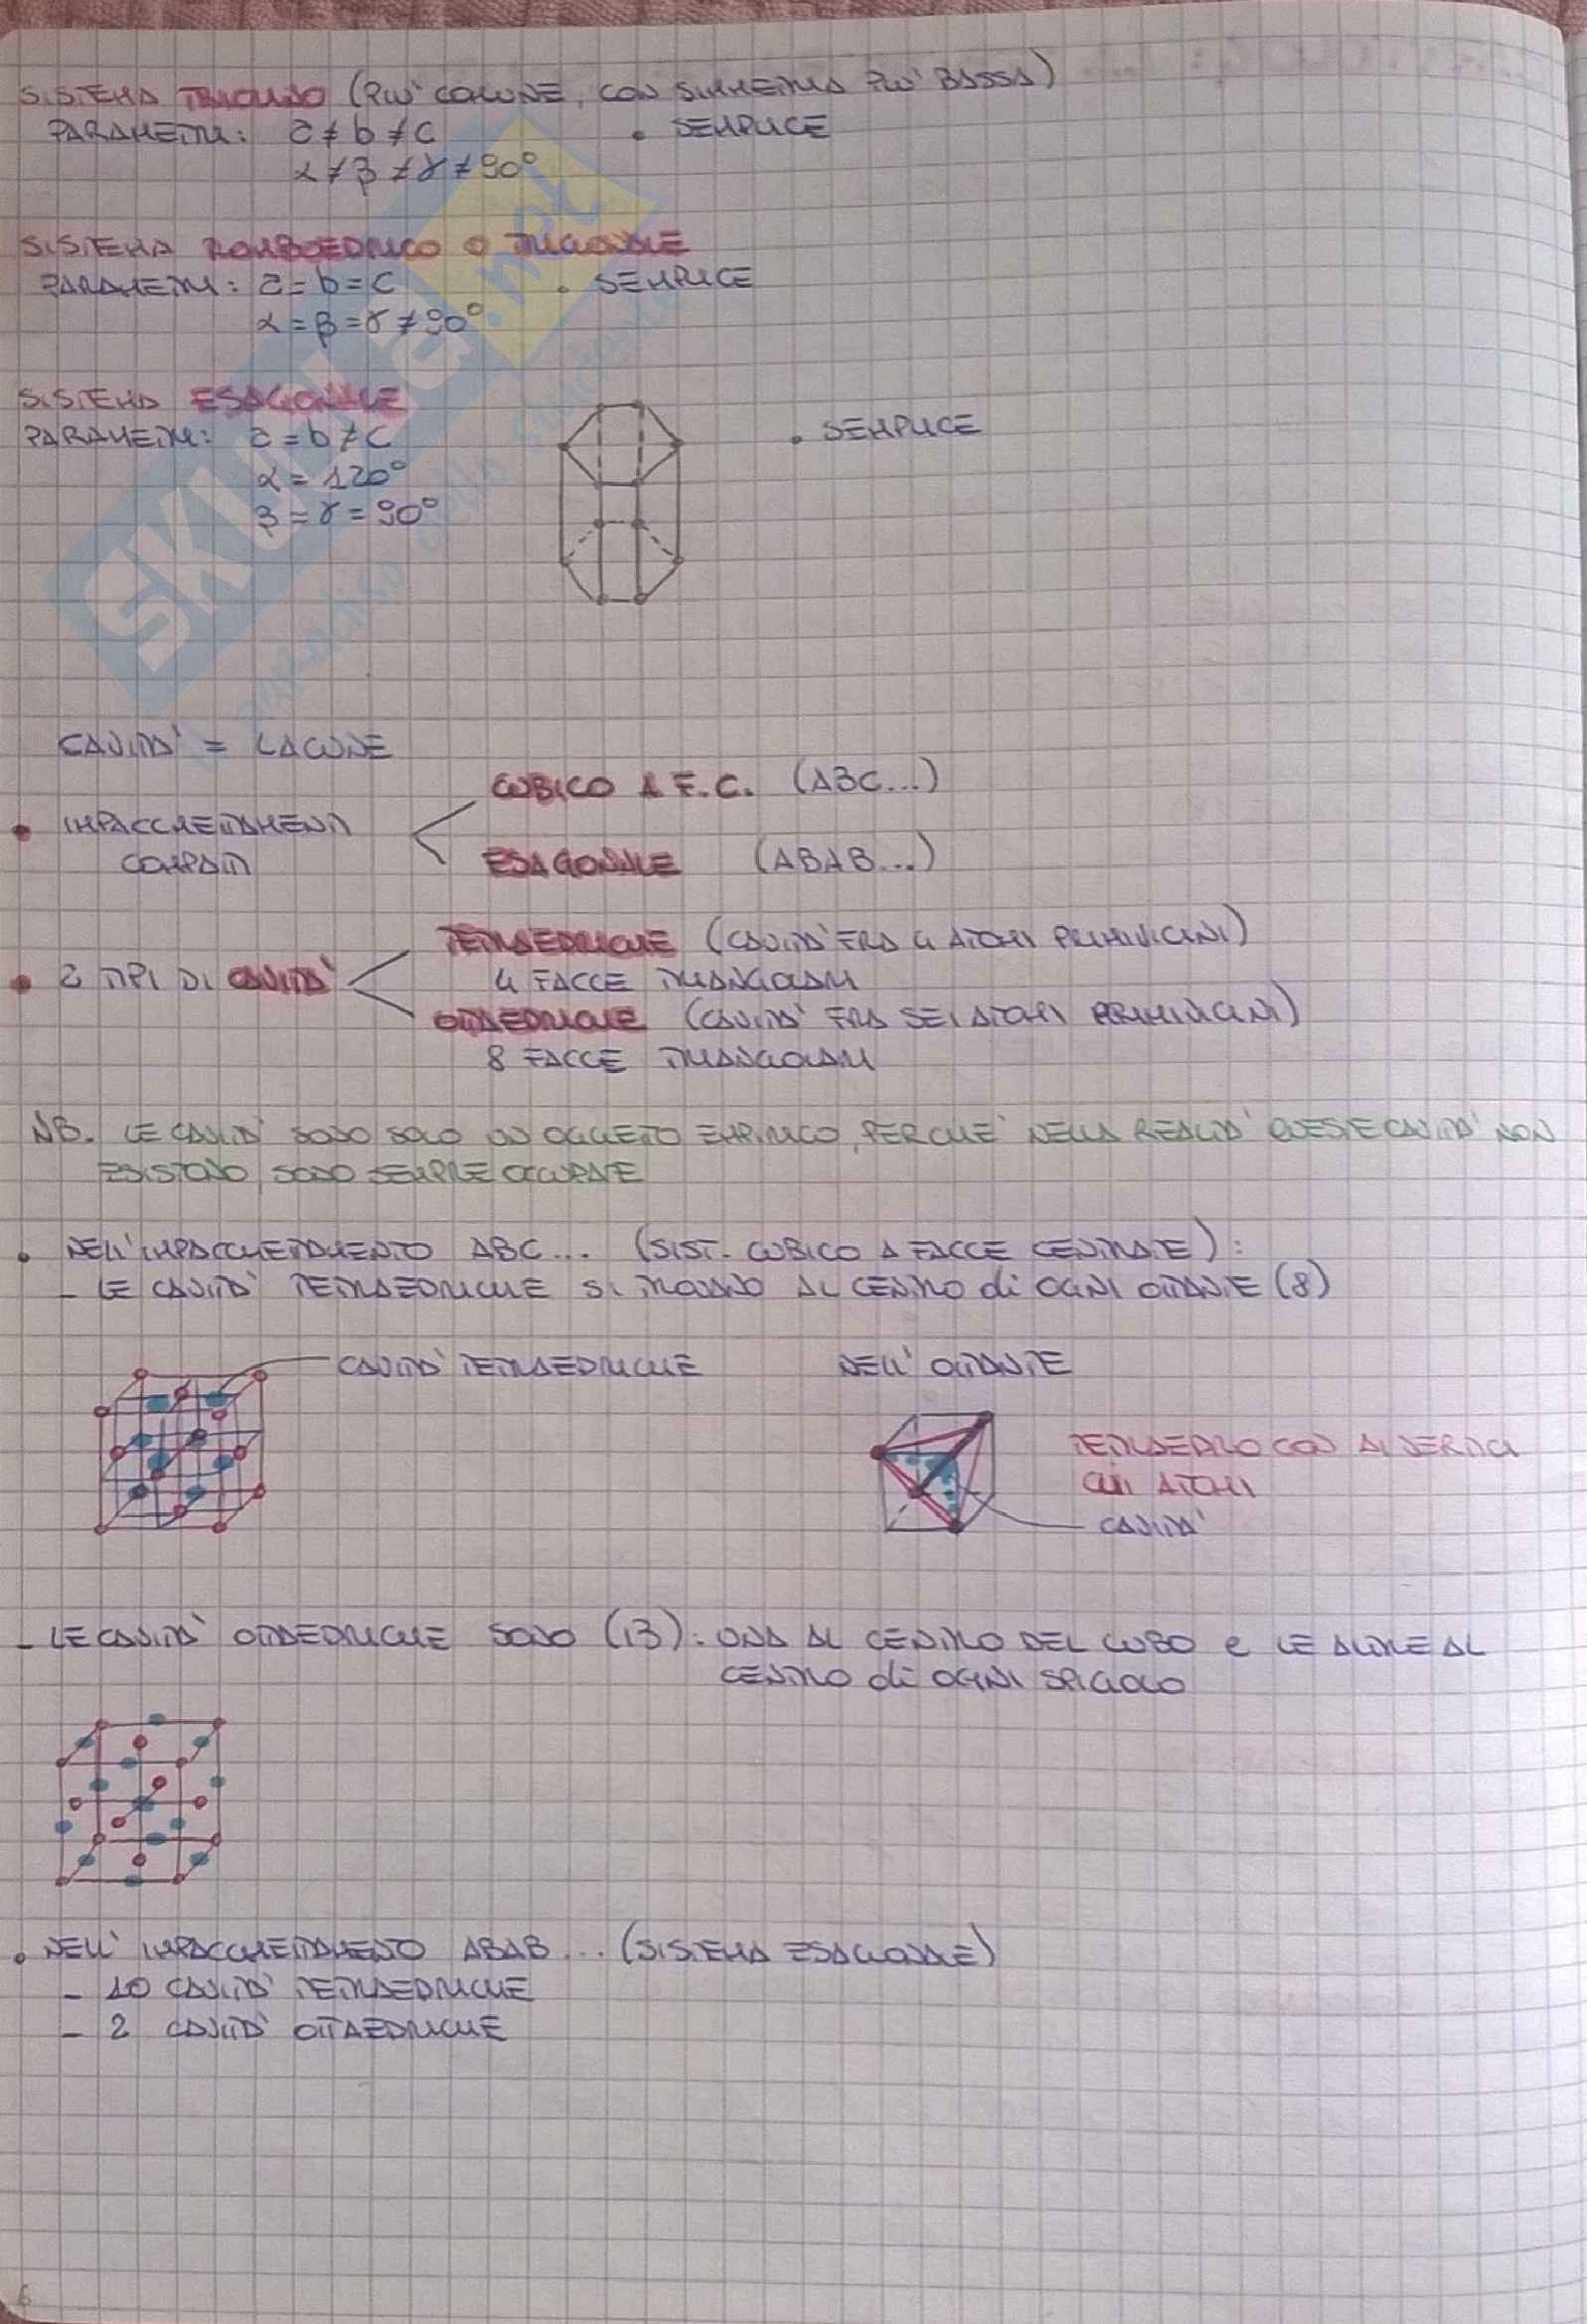 SISTEMA TRICLINO (PIU' COMUNE, CON SIMMETRIA PIU' BASSA)
PARAMETRI: a ≠ b ≠ c • SEMPLICE
α ≠ β ≠ γ ≠ 90°
SISTEMA ROMBOEDRICO O TRIGONALE
PARAMETRI: a = b = c • SEMPLICE
α = β = γ ≠ 90°
SISTEMA ESAGONALE
PARAMETRI: a = b ≠ c • SEMPLICE
α = 120°
β = γ = 90°
CAVITA' = LACUNE
CUBICO A F.C. (ABC...)
• IMPACCHETTAMENTI
COMPATTI
ESAGONALE (ABAB...)
TETRAEDRICHE (CAVITA' FRA 4 ATOMI PRIMI VICINI)
• 2 TIPI DI CAVITA'
4 FACCE TRIANGOLARI
OTTAEDRICHE (CAVITA' FRA SEI ATOMI PRIMI VICINI)
8 FACCE TRIANGOLARI
NB. LE CAVITA' SONO SOLO UN OGGETTO EMPIRICO, PERCHE' NELLA REALTA' QUESTE CAVITA' NON
ESISTONO, SONO SEMPRE OCCUPATE
• NELL'IMPACCHETTAMENTO ABC... (SIST. CUBICO A FACCE CENTRATE):
- LE CAVITA' TETRAEDRICHE SI TROVANO AL CENTRO di OGNI OTTANTE (8)
CAVITA' TETRAEDRICHE NELL' OTTANTE
TETRAEDRO CON AI VERTICI
GLI ATOMI
CAVITA'
- LE CAVITA' OTTAEDRICHE SONO (13): UNA AL CENTRO DEL CUBO e LE ALTRE AL
CENTRO di OGNI SPIGOLO
• NELL' IMPACCHETTAMENTO ABAB... (SISTEMA ESAGONALE)
- 10 CAVITA' TETRAEDRICHE
- 2 CAVITA' OTTAEDRICHE
6